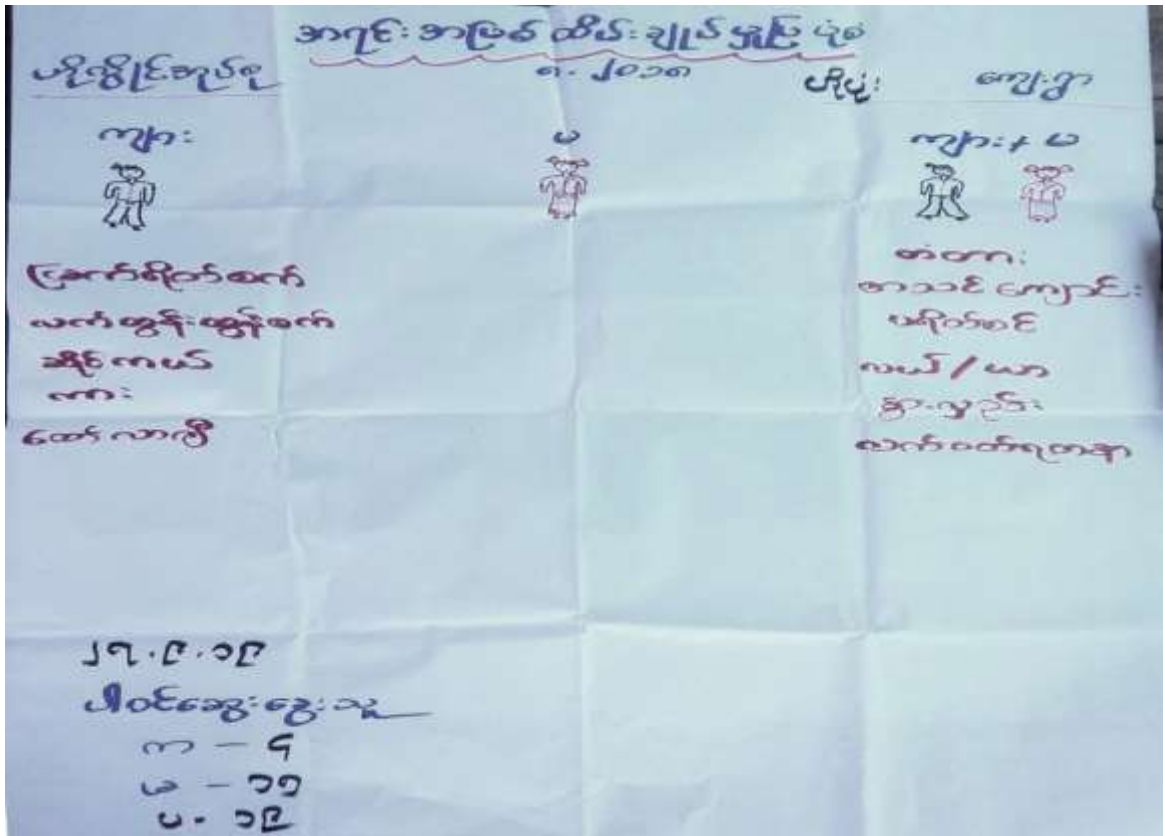 အရင်းအမြစ် ထိမ်းချုပ်မှုပြပုံစံ
ဟိုလှိုင်အုပ်စု ၈.၂၀၁၈ ဟိုပုံး ကျေးရွာ
ကျား မ ကျား + မ
ခြောက်စက်
လက်တွန်းထွန်စက်
ဆိုင်ကယ်
ကား
ထော်လာဂျီ
တံတား
စာသင်ကျောင်း
ပရိုက်စင်
လယ် / ယာ
နွားလှည်း
လက်ဝတ်ရတနာ
၂၇.၉.၁၉
ပါဝင်ဆွေးနွေးသူ
ကာ – ၄
မ – ၁၅
ပ - ၁၉